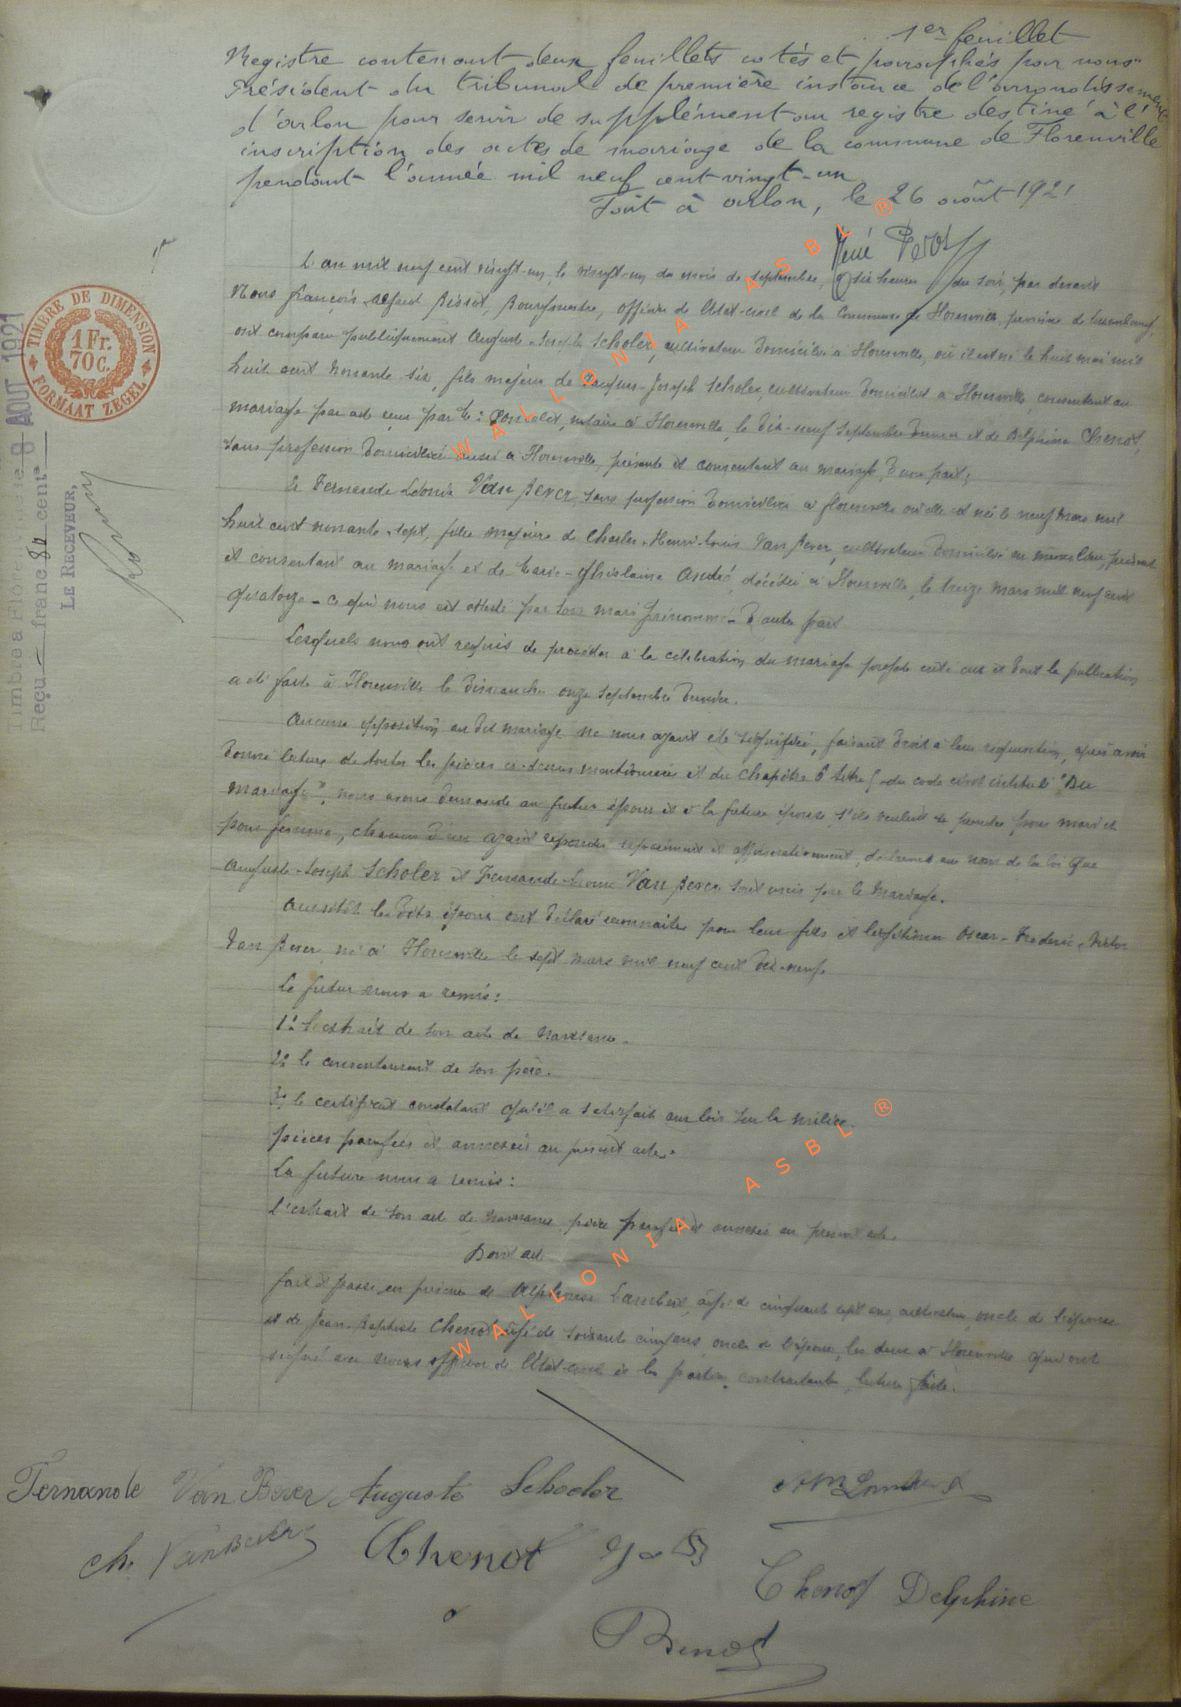 1er feuillet
Registre contenant deux feuillets cotés et paraphés par nous
Président du tribunal de première instance de l'arrondissement
d'Arlon pour servir de supplément au registre destiné à l'
inscription des actes de mariage de la commune de Florenville
pendant l'année mil neuf cent vingt-un
Fait à Arlon, le 26 août 1921
René
L'an mil neuf cent vingt-un, le vingt-un du mois de septembre, à six heures du soir, par devant
Nous François, Bourgmestre, officier de l'état-civil de la Commune de Florenville, province de Luxembourg,
ont comparu publiquement Auguste-Joseph Scholer, cultivateur domicilié à Florenville, où il est né le huit mai mil
huit cent nonante six, fils majeur de Jacques-Joseph Scholer, cultivateur domicilié à Florenville, consentant au
mariage par acte reçu par notaire à Florenville, le dix-neuf septembre dernier et de Delphine Chenot,
sans profession domiciliée aussi à Florenville, présente et consentant au mariage, d'une part;
Et Fernande Léonie Van Bever, sans profession domiciliée à Florenville où elle est née le neuf mars mil
huit cent nonante-sept, fille majeure de Charles-Henri-Louis Van Bever, cultivateur domicilié au même lieu, présent
et consentant au mariage et de Marie-Ghislaine André, décédée à Florenville, le treize mars mil neuf cent
quatorze - ce qui nous est attesté par son mari prénommé - d'autre part
Lesquels nous ont requis de procéder à la célébration du mariage projeté entre eux et dont la publication
a été faite à Florenville le dimanche onze septembre dernier.
Aucune opposition au dit mariage ne nous ayant été signifiée, faisant droit à leur réquisition, après avoir
donné lecture de toutes les pièces ci-dessus mentionnées et du chapitre 6 titre 5 du code civil intitulé "Du
mariage", nous avons demandé au futur époux et à la future épouse s'ils veulent se prendre pour mari et
pour femme, chacun d'eux ayant répondu séparément et affirmativement, déclarons au nom de la loi que
Auguste-Joseph Scholer et Fernande-Léonie Van Bever sont unis par le mariage.
Aussitôt les dits époux ont déclaré reconnaître pour leur fils et légitimer Oscar-Frédéric-
Van Bever, né à Florenville le sept mars mil neuf cent dix-neuf.
Le futur nous a remis:
1° L'extrait de son acte de naissance.
2° le consentement de son père.
3° le certificat constatant qu'il a satisfait aux lois sur la milice.
pièces parafées et annexées au présent acte.
La future nous a remis:
L'extrait de son acte de naissance, pièce parafée et annexée au présent acte.
Dont acte
fait et passé en présence de Alphonse Lambert, âgé de cinquante sept ans, cultivateur, oncle de l'épouse
et de Jean-Baptiste Chenot âgé de soixante cinq ans, oncle de l'époux, les deux à Florenville qui ont
signé avec nous officier de l'état-civil et les parties contractantes, lecture faite.
Fernande Van Bever Auguste Schooler
Ch. Van Bever Chenot
Chenot Delphine
TIMBRE DE DIMENSION
1 Fr.
70 C.
FORMAAT ZEGEL
Timbré à Florenville le 8 AOUT 1921
Reçu franc 80 cent
LE RECEVEUR,
WALLONIA ASBL ®
WALLONIA ASBL ®